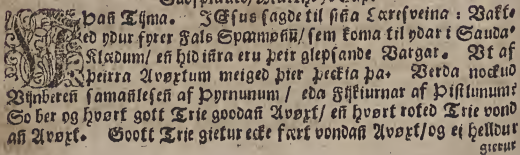 þan̄ Tijma. JEsus sagde til sin̄a Læresveina : Vakt-
ed ydur fyrer Fals Spæmøn̄ū/ sem koma til ydar i Sauda-
Klædum/ en̄ hid in̄ra eru þeir glepsande Vargar. Vt af
þeirra Avøxtum meiged þier þeckia þa. Verda nockud
Vijnberen̄ saman̄lesen̄ af Þyrnunum/ eda Fijkiurnar af Þistlunum?
So ber og hvørt gott Trie goodan̄ Avøxt/ en̄ hvørt roted Trie vond
an̄ Avøxt. Goott Trie gietur ecke fært vondan̄ Avøxt/og ei helldur
gietur